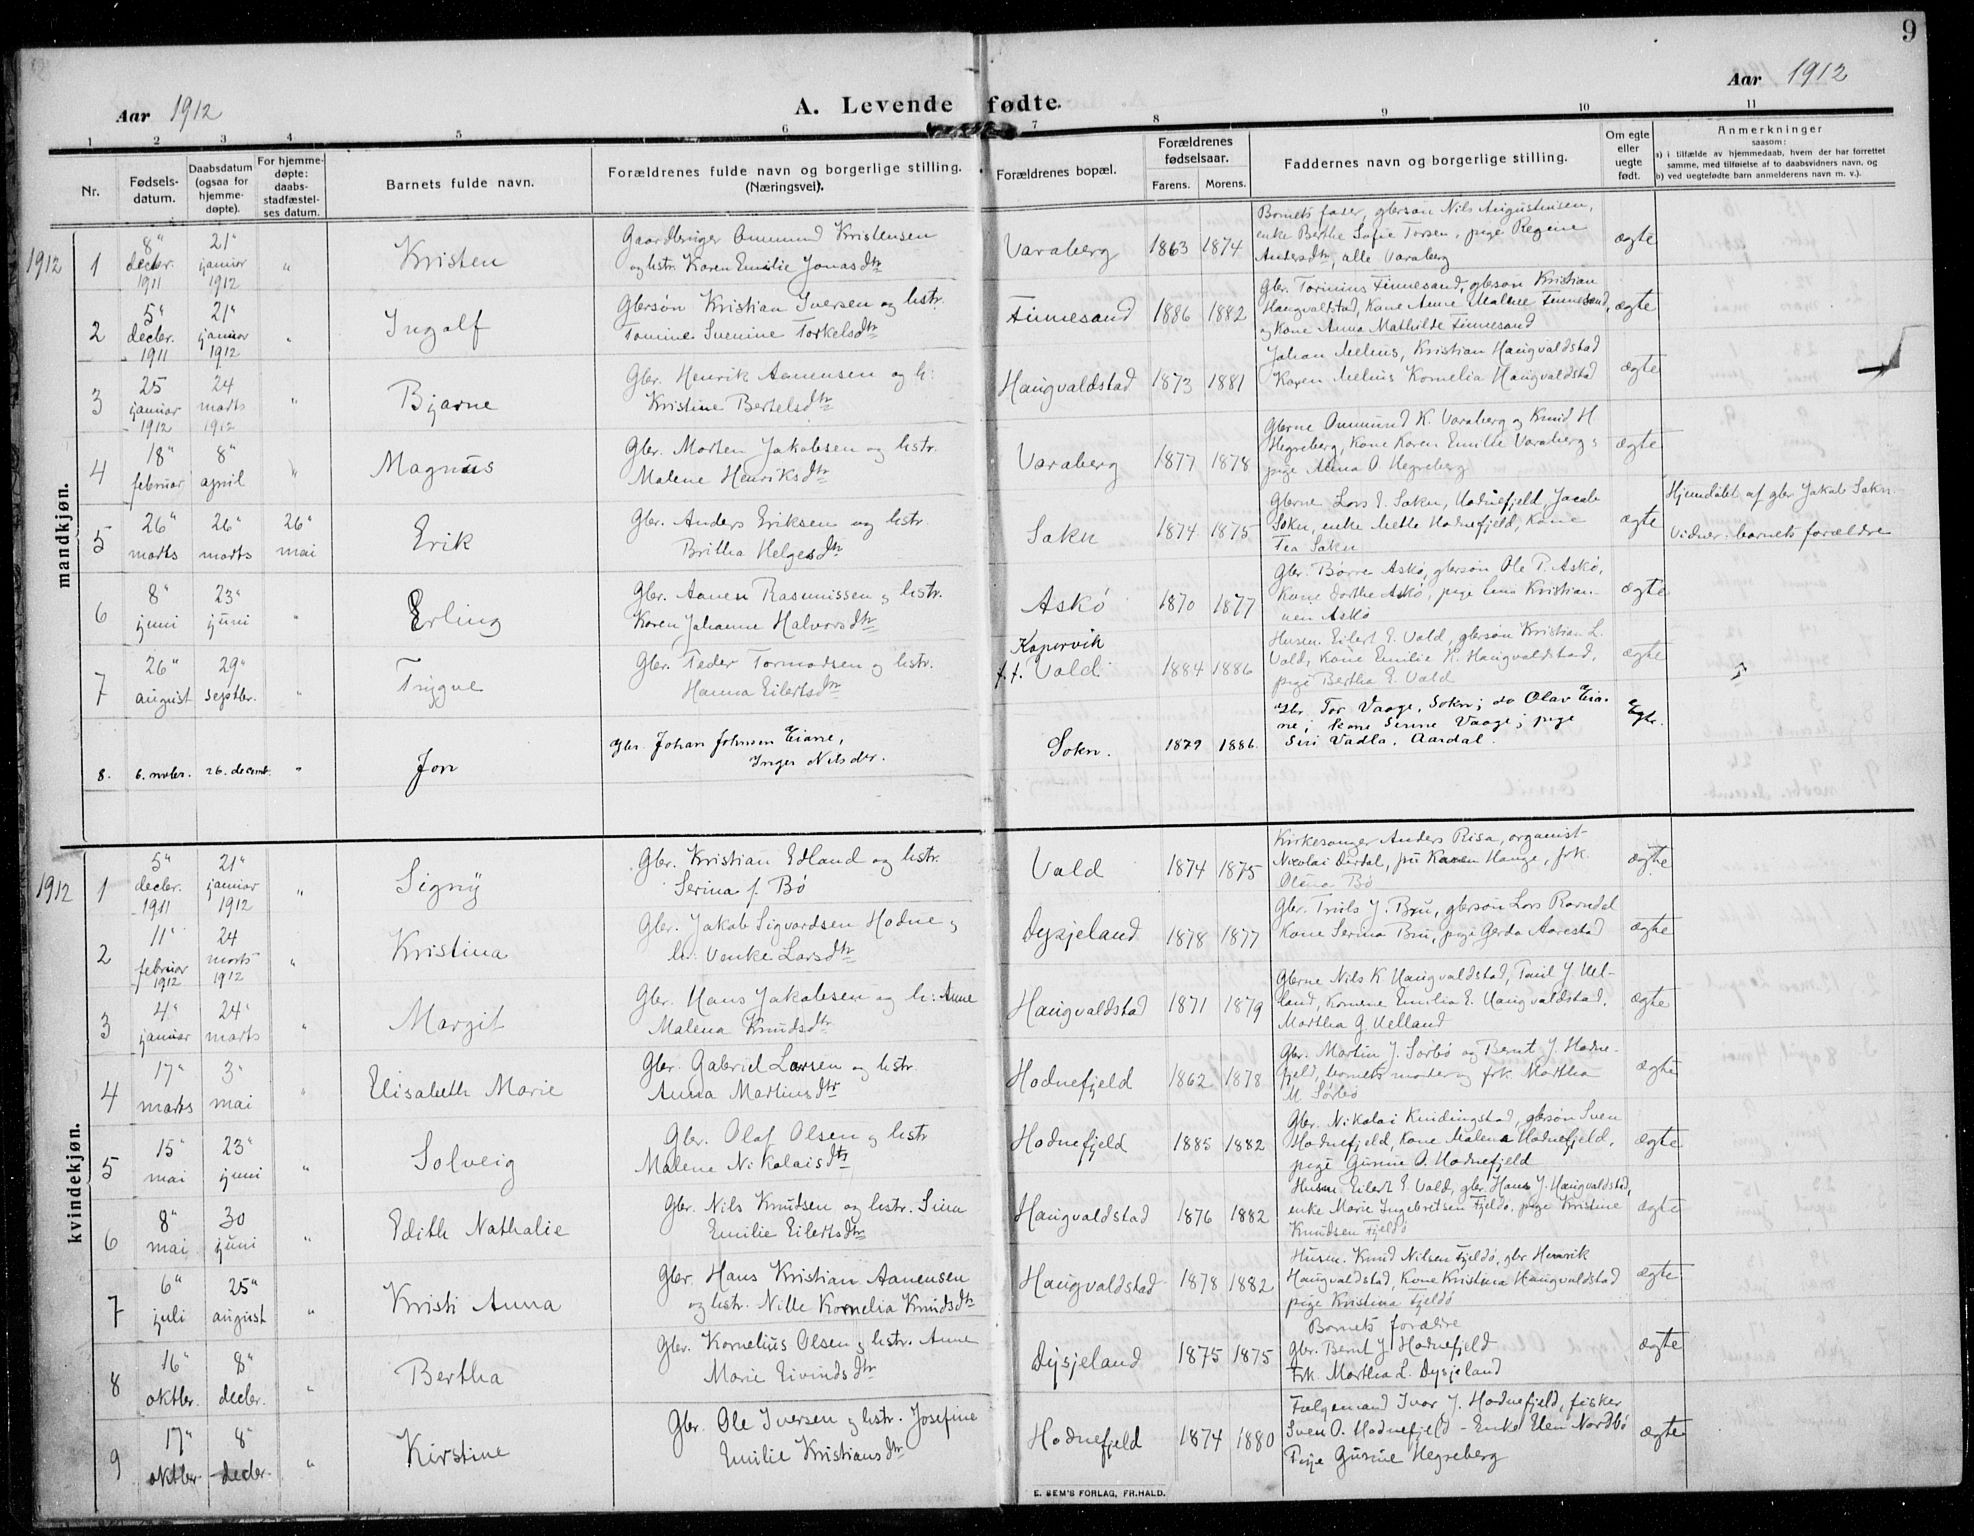 9
Aar 1912
A. Levende fødte.
Aar 1912
1 2 3 4 5 6 7 8 9 10 11
Nr.
Fødsels-
datum.
Daabsdatum
(ogsaa for
hjemme-
døpte).
For hjemme-
døpte:
daabs-
stadfæstel-
ses datum.
Barnets fulde navn.
Forældrenes fulde navn og borgerlige stilling.
(Næringsvei).
Forældrenes bopæl.
Forældrenes
fødselsaar.
Farens. Morens.
Faddernes navn og borgerlige stilling.
Om egte
eller
uegte
født.
Anmerkninger
saasom:
a) i tilfælde av hjemmedaab, hvem der har forrettet
samme, med tilføielse af to daabsvidners navn, og
b) ved uegtefødte barn anmelderens navn m. v.).
mandkjøn.
1912 1
8" decbr. 1911
21" januar 1912
"
Kristen
Gaardbruger Ommund Kristensen
og hstr. Karen Emilie Jonasdtr
Varaberg 1863 1874
Barnets faster, gbrsøn Nils Augustinsen,
enke Berthe Sofie Torsen, pige Regine
Andersdtr, alle Varaberg
ægte
2
5" decbr. 1911
21" januar 1912
"
Ingolf
Gbrsøn Kristian Iversen og hstr.
Tomine Severine Torkelsdtr
Finnesand 1886 1882
Gbr. Torinius Finnesand, gbrsøn Kristian
Haugvaldstad, Kone Anne Malene Finnesand,
og Kone Anna Mathilde Finnesand
ægte
3
25 januar 1912
24 marts 1912
"
Bjarne
Gbr. Henrik Aanensen og h:
Kristine Bertelsdtr
Haugvaldstad 1873 1881
Johan Melhus, Kristian Haugvaldstad
Karen Melhus Kornelia Haugvaldstad
ægte
4
18" februar
8" april
"
Magnus
Gbr. Morten Jakobsen og hstr.
Malene Henriksdtr
Varaberg 1877 1878
Gbrne Ommund K. Varaberg og Knud H.
Hegreberg, Kone Karen Emilie Varaberg,
pige Anna O. Hegreberg
ægte
5
26" marts
26" marts
26" mai
Erik
Gbr. Anders Eriksen og hstr.
Britha Helgesdtr
Sokn 1874 1875
Gbrne Lars E. Sokn, Hodnefjeld, Jacob
Sokn, enke Mette Hodnefjeld, Kone
Tea Sokn
ægte
Hjemdøbt af gbr Jakob Sokn.
Vidner: barnets forældre
6
8" juni
23" juni
"
Erling
Gbr. Aanen Rasmussen og hstr.
Karen Johanne Halvorsdtr
Askø 1870 1877
Gbr. Børre Askø, gbrsøn Ole P. Askø,
Kone Dorthe Askø, pige Lina Kristian-
sen Askø
ægte
7
26" august
29" septbr.
"
Trygve
Gbr. Peder Tormodsen og hstr.
Hanna Eilertsdtr
Kopervik
f. f. Vold 1884 1886
Husm. Eilert E. Vald, gbrsøn Kristian L.
Vald, Kone Emilie K. Haugvaldstad,
pige Bertha E. Vald
ægte
8. 6. novbr. 26. decemb. "
Jon
Gbr. Johan Johnsen Eiane,
Inger Nilsdtr.
Sokn. 1879 1886.
Gbr. Tor Vaage, Sokn; do Olav Eia-
ne; kone Serine Vaage; pige
Siri Vadla, Aardal.
Egte.
kvindekjøn.
1912 1
5" decbr. 1911
21" januar 1912
"
Signy
Gbr. Kristian Edland og hstr.
Serina f. Bø
Vald 1874 1875
Kirkesanger Anders Risa, organist
Nicolai Dirdal, pii Karen Hauge, frk.
Olina Bø
ægte
2
11" februar 1912
24 marts 1912
"
Kristina
Gbr. Jakob Sigvardsen Hodne og
h: Venke Larsdtr
Dysjeland 1878 1877
Gbr. Truls J. Bru, gbrsøn Lars Ramdal
Kone Serina Bru, pige Gerda Aarestad
ægte
3
4" januar
24" marts
"
Margit
Gbr. Hans Jakobsen og h: Anne
Malena Knudsdtr
Haugvaldstad 1871 1879
Gbrne Nils K Haugvaldstad, Paul J. Hel-
land, Konene Emilia E. Haugvaldstad,
Martha G. Helland
ægte
4
17" marts
3" mai
"
Elisabeth Marie
Gbr. Gabriel Larsen og hstr.
Anna Martinsdtr
Hodnefjeld 1862 1878
Gbr. Martin J. Sørbø og Bernt J. Hodne-
fjeld, barnets moder og frk. Martha
M Sørbø
ægte
5
15" mai
23" juni
"
Solveig
Gbr. Olaf Olsen og hstr
Malene Nikolaisdtr
Hodnefjeld 1885 1882
Gbr. Nikolai Kindingstad, gbrsøn Sven
Hodnefjeld, Kone Malena Hodnefjeld,
pige Gurine O. Hodnefjeld
ægte
6
8" mai
30 juni
"
Edith Nathalie
Gbr. Nils Knudsen og hstr. Sina
Emilie Eilertsdtr
Haugvaldstad 1876 1882
Husm. Eilert E. Vald, gbr. Hans J. Haugvaldstad,
enke Marie Ingebretsen Fjeldø, pige Kristine
Knudsen Fjeldø
ægte
7
6" juli
25" august
"
Kristi Anna
Gbr. Hans Kristian Aanensen
og hstr. Nille Kornelia Knudsdtr
Haugvaldstad 1878 1882
Husm. Knud Nilsen Fjeldø, gbr Henrik
Haugvaldstad, Kone Kristina Haugvaldstad
pige Kristina Fjeldø
ægte
8
16" oktbr.
8" decbr.
"
Bertha
Gbr. Kornelius Olsen og hstr. Anne
Marie Eivindsdtr
Dysjeland 1875 1875
Barnets forældre
Gbr. Bernt J Hodnefjeld
Frk. Martha L. Dysjeland
ægte
9
17" oktbr
8" decbr.
"
Kirstine
Gbr. Ole Iversen og hstr. Josefine
Emilie Kristiansdtr
Hodnefjeld 1874 1880
Følgemand Ivar J. Hodnefjeld, fisker
Sven O. Hodnefjeld - Enke Elen Nordbø
Pige Gurine Hegreberg
ægte
E. SEM'S FORLAG, FR.HALD.